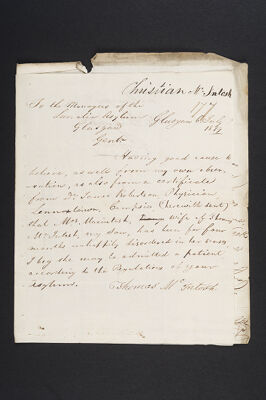 Christian McIntosh
177
To the Managers of the
Lunatic Asylum
Glasgow
Glasgow July
Gent
Having good cause to
believe, as well from my own obser-
vation, as also from a certificate
from Dr James Robertson Physician
Lennoxtown, Campsie (herewith sent)
that Mrs. Macintosh, wife of Thomas
McIntosh, my son, has been for four
months unhappily disordered in her
I beg she may be admitted a patient
according to the Regulations of your
asylum.
Thomas McIntosh